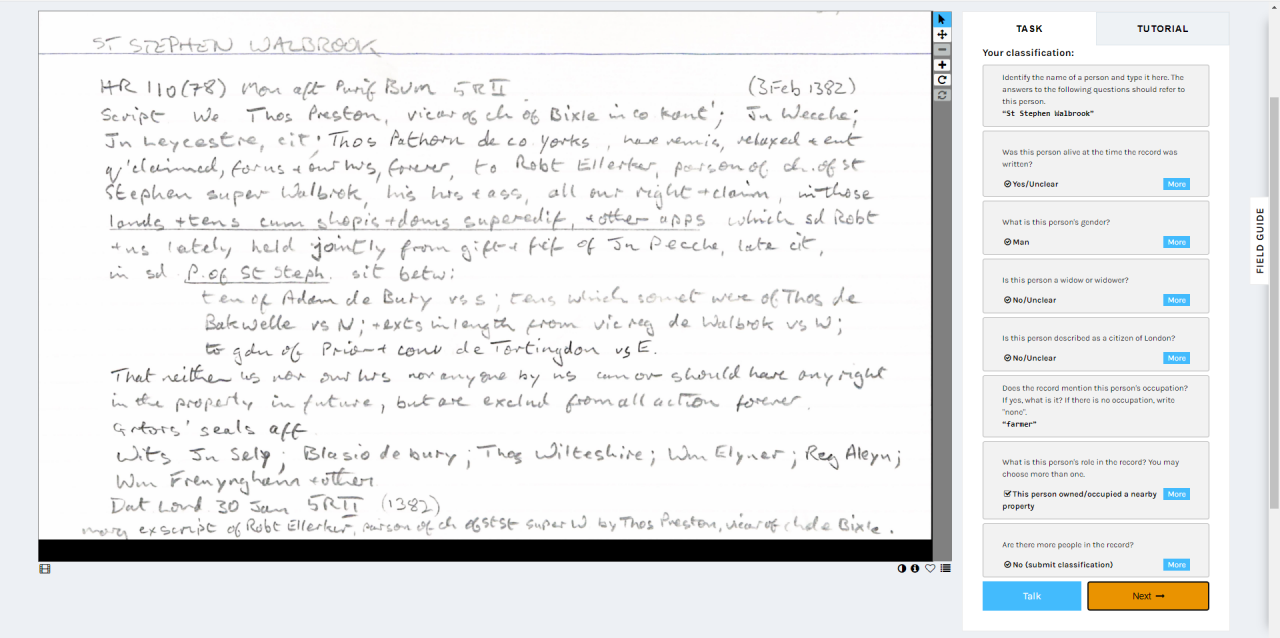 ST STEPHEN WALBROOK
HR 110(78) Mon aft Purif BVM 5RII (3 Feb 1382)
Script. We Thos Preston, vicar of ch of Bixle in co Kant'; Jn Wecche;
Jn Leycestre, cit; Thos Pathorn de co Yorks, have remis, relaxed + ent
q'claimed, for us + our hrs, forever, to Robt Ellerker, parson of ch. of St
Stephen super Walbrok, his hrs + ass, all our right + claim, in those
lands + tens cum shopis + doms superedif, + other apps which sd Robt
+ us lately held jointly from gift + fef of Jn Pecche, late cit,
in sd P. of St Steph. sit betw:
ten of Adam de Bury vs S; tens which somet were of Thos de
Bakwelle vs N; + exts in length from vic reg de Walbrok vs W;
to gdn of Prior + conv de Tortingdon vs E.
That neither us nor our hrs nor anyone by us can or should have any right
in the property in future, but are exclud from all action forever.
Grtors' seals aff.
Wits Jn Sely; Blasio de Bury; Thos Wilteshire; Wm Elyner; Reg Aleyn;
Wm Frenynghann + other.
Dat Lond 30 Jan 5RII (1382)
marg exscript of Robt Ellerker, parson of ch of St St super W by Thos Preston, vicar of ch de Bixle.
TASK
TUTORIAL
Your classification:
Identify the name of a person and type it here. The
answers to the following questions should refer to
this person.
"St Stephen Walbrook"
Was this person alive at the time the record was
written?
Yes/Unclear
More
What is this person's gender?
Man
More
Is this person a widow or widower?
No/Unclear
More
Is this person described as a citizen of London?
No/Unclear
More
Does the record mention this person's occupation?
If yes, what is it? If there is no occupation, write
"none".
"farmer"
What is this person's role in the record? You may
choose more than one.
This person owned/occupied a nearby
property
More
Are there more people in the record?
No (submit classification)
More
Talk
Next →
FIELD GUIDE